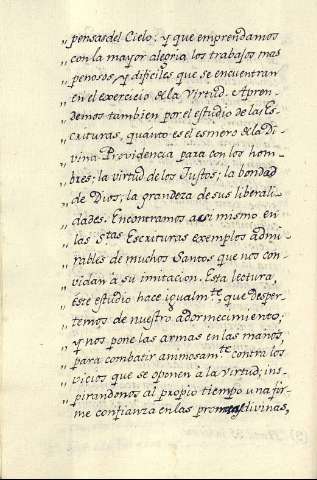 „ pensas del Cielo; y que emprendamos
„ con la mayor alegria los trabajos mas
„ penosos, y dificiles que se encuentran
„ en el exercicio de la Virtud. Apren-
„ demos tambien por el estudio de las Es-
„ crituras, quanto es el esmero de la Di-
„ vina Providencia para con los hom-
„ bres; la virtud de los Justos; la bondad
„ de Dios; la grandeza de sus liberali-
„ dades. Encontramos asi mismo en
„ las Stas Escrituras exemplos admi-
„ rables de muchos Santos que nos con-
„ vidan à su imitacion. Esta lectura,
„ éste estudio hace igualmte que desper-
„ temos de nuestro adormecimiento;
„ y nos pone las armas en las manos,
„ para combatir animosamte contra los
„ vicios que se oponen à la virtud; ins-
„ pirandonos al propio tiempo una fir-
„ me confianza en las divinas,